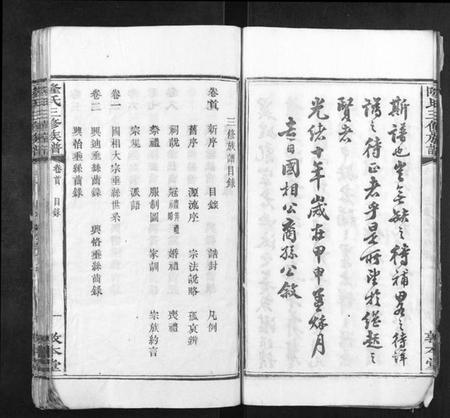 斯譜也豈無缺之待補畧之待詳
誤之待正者乎是所望於繼起之
賢者
光緒十年歲在甲申孟秋月
吉日國相公裔孫公敘
敦本堂
三修族譜目錄
卷首 新序 目錄 誥封 凡例
舊序 源流序 宗法說略
祠戢 冠禮 婚禮 喪禮
祭禮 服制圖 家訓 宗族約言
宗規 派語
卷一 國相大宗垂絲世系
卷二 興迪垂絲齒錄 興恰垂絲齒錄
興怡垂絲齒錄
氏三修族譜 卷首 目錄 一 敦本堂